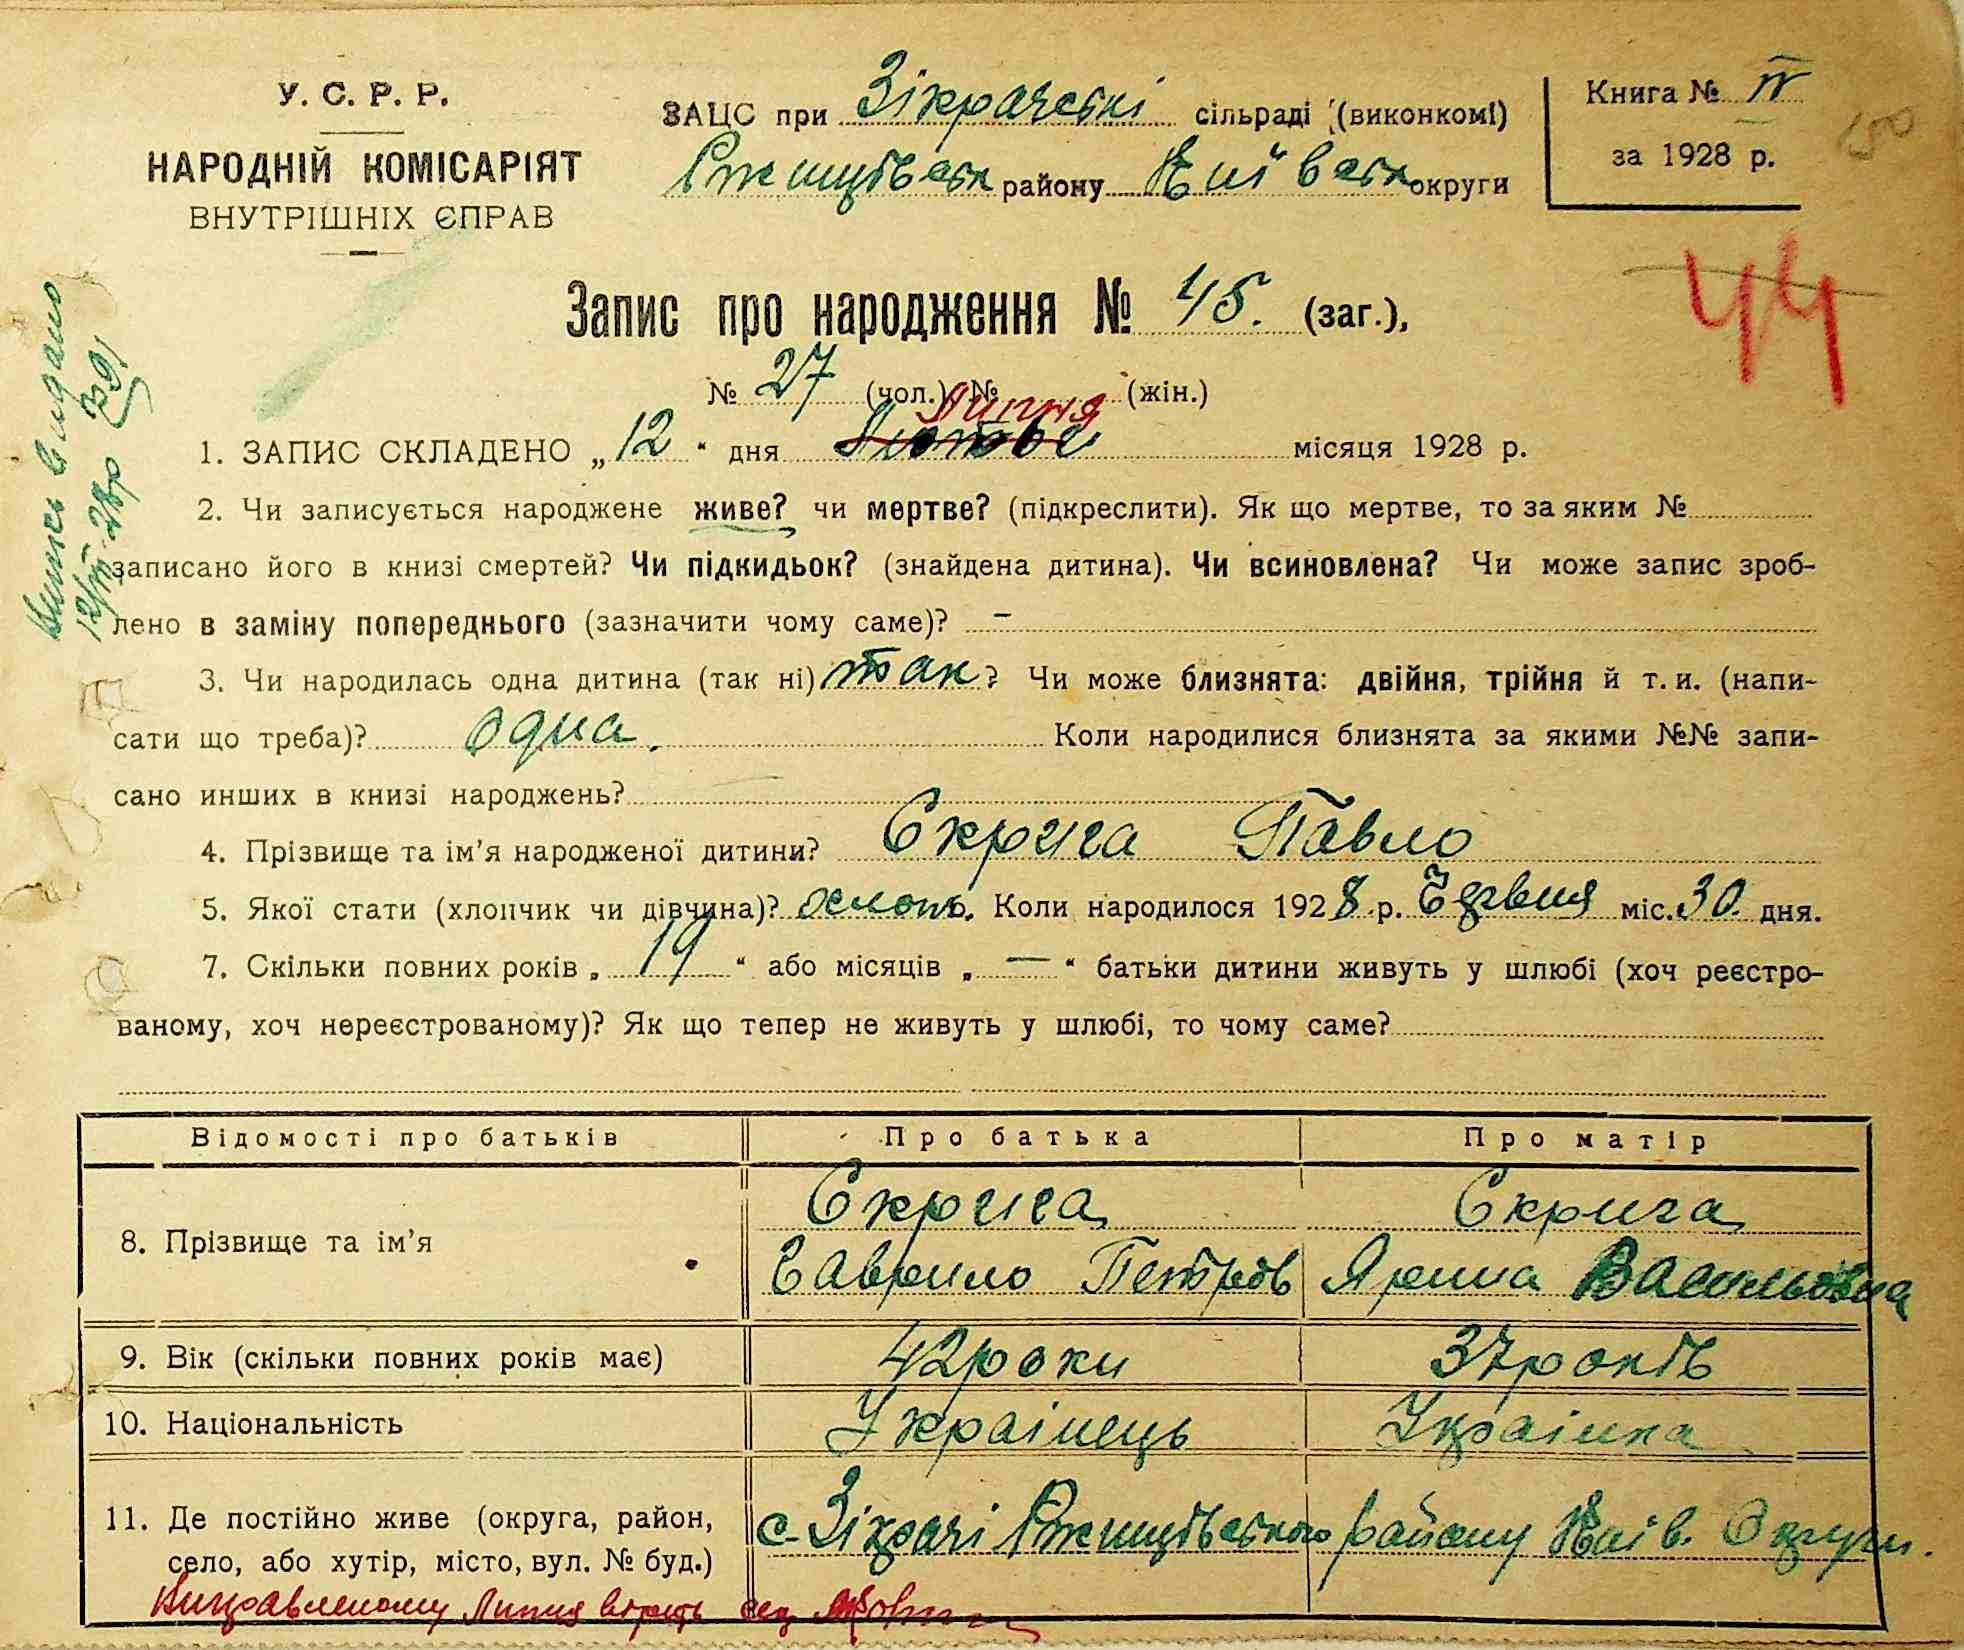 У. С. Р. Р.
НАРОДНІЙ КОМІСАРІЯТ
ВНУТРІШНІХ ЄПРАВ
ЗАЦС при Зікрачеські сільраді (виконкомі)
Ржищівськ району Київськ округи
Книга № IV
за 1928 р.
50
44
Запис про народження № 45. (заг.),
№ 27 (чол.) № (жін.)
Липня
1. ЗАПИС СКЛАДЕНО „12“ дня Лютого місяця 1928 р.
2. Чи записується народжене живе? чи мертве? (підкреслити). Як що мертве, то за яким №
записано його в книзі смертей? Чи підкидьок? (знайдена дитина). Чи всиновлена? Чи може запис зроб-
лено в заміну попереднього (зазначити чому саме)? –
3. Чи народилась одна дитина (так ні) так? Чи може близнята: двійня, трійня й т. и. (напи-
сати що треба)? одна. Коли народилися близнята за якими №№ запи-
сано инших в книзі народжень?
4. Прізвище та ім’я народженої дитини? Скрича Павло
5. Якої стати (хлопчик чи дівчина)? хлопь. Коли народилося 1928 р. Червня міс. 30. дня.
7. Скільки повних років „19“ або місяців „—“ батьки дитини живуть у шлюбі (хоч реєстро-
ваному, хоч нереєстрованому)? Як що тепер не живуть у шлюбі, то чому саме?
Відомості про батьків Про батька Про матір
8. Прізвище та ім’я
Скрича
Гаврило Петров
Скрича
Ярина Васильовна
9. Вік (скільки повних років має) 42 роки 37 років
10. Національність Українець Українка
11. Де постійно живе (округа, район,
село, або хутір, місто, вул. № буд.)
с. Зікрачі Ржищівського району Київ. Округи.
Виправленому Липня вірить сек
Випись видано
12/VII 28р